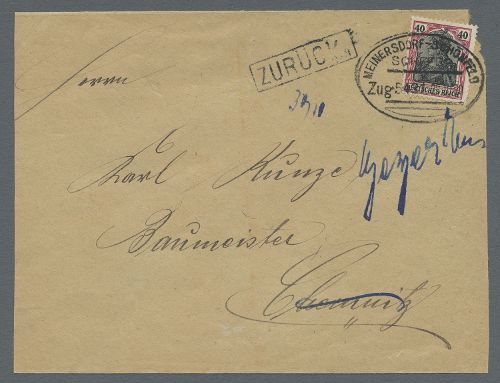 ZURÜCK
40 40
MEINERSDORF-SCHÖNFELD
Zug
DEUTSCHES REICH
Herrn
Karl Kunze
Baumeister
Chemnitz